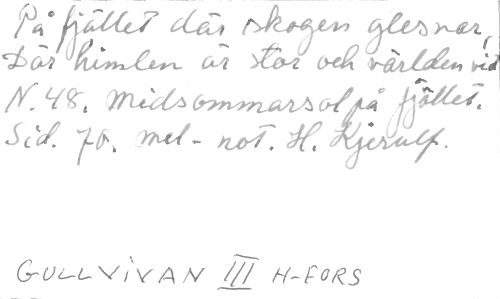 På fjället där skogen glesnar,
Där himlen är stor och världen vid
N. 48. Midsommarsol på fjället.
Sid. 70. mel - not. H. Kjerulf.
GULLVIVAN III H-FORS